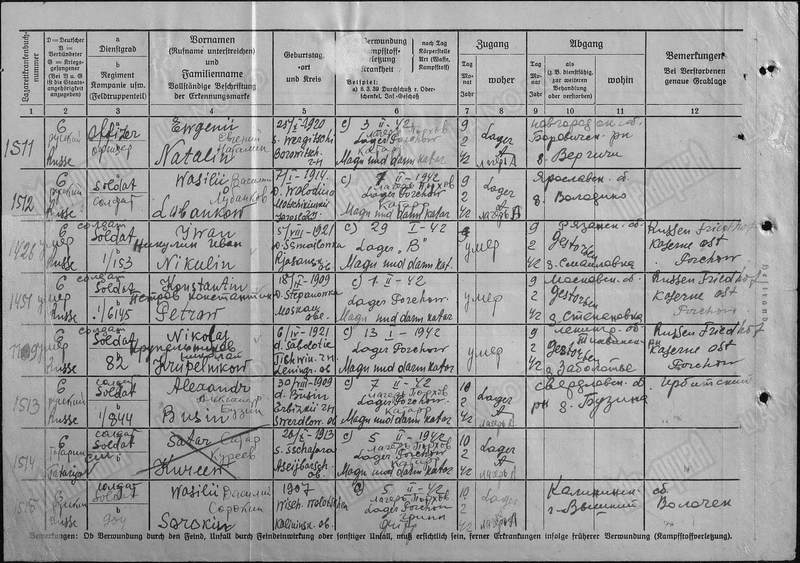 Lazarettkrankenbuch-nummer
D = Deutscher
V = Verbündeter
G = Kriegsgefangener
(Bei V u G
ist die Staats-
angehörigkeit
anzugeben)
a
Dienstgrad
b
Regiment
Kompanie usw.
(Feldtruppenteil)
Vornamen
(Rufname unterstreichen)
und
Familienname
Vollständige Beschriftung
der Erkennungsmarke
Geburtstag,
-ort
und Kreis
Verwundung
Kampfstoff-
verletzung
Krankheit
nach Tag
Körperstelle
Art (Waffe,
Kampfstoff)
Beispiel:
a) 8. 3. 39 Durchschuß r. Ober-
schenkel, Inf.-Geschoß
Zugang
Tag
Mo-
nat
Jahr
woher
Abgang
Tag
Mo-
nat
Jahr
als
(z. B. dienstfähig,
zur weiteren
Behandlung
oder verstorben)
wohin
Bemerkungen
Bei Verstorbenen
genaue Grablage
1 2 3 4 5 6 7 8 9 10 11 12
1511
G
русский
Russe
a
Offizier
офицер
Ewgenii
Евгений
Наталин
Natalin
25/I-1920
s. Wergitschi
Borowitsch.
c) 3 II-42
лагерь Порхов
Magn und darm katar
9
2
42
Lager
A
лагерь A
Новгородск. об.
Боровичск. рн
д. Вергичи
1512
G
русский
Russe
Soldat
солдат
Wasilii Василий
Лубанков
Lubankow
7/I-1914.
D. Wolodino
Jaroslaw.
c) 7 II-1942
лагерь Порхов
Lager Porchow
Magn und darm katar
9
2
42
Lager
A
лагерь A
Ярославск. об.
д. Володино
1426
G
умер
Russe
солдат
Soldat
b
1/153
Iwan
Никулин Иван
Nikulin
5/VII-1921
D. Smailowka
Rjasansk.
c) 29 I-42
Lager "B"
Magn und darm kat.
умер
9
2
42
Рязанск. об.
Gestorben
д. Смаиловка
Russen Friedhof
Kaserne ost
Porchow
1451
G
умер
Russe
солдат
Soldat
b
1/6145
Konstantin
Петров Константин
Petrow
18/IV-1909
D. Stepanowka
Moskau
obe.
c) 1 II-42
Lager Porchow
Magn und darm katar
умер
9
2
42
Московск. об.
Gestorben
д. Степановка
Russen Friedhof
Kaserne ost
Porchow
G
умер
Russe
солдат
Soldat
82
Nikolai
Крупельников
Николай
Krupelnikow
6/IV-1921
d. Sabolotie
Tichwin.
Leningr. ob.
c) 13 I-1942
Lager Porchow
Magn und darm katar
умер
9
2
42
Ленингр. об.
Тихвинск. рн
Gestorben
д. Заболотье
Russen Friedhof
Kaserne ost
Porchow
1513
G
русский
Russe
солдат
Soldat
b
1/844
Alexandr
Александр
Бузин
Busin
30/VIII-1909
d. Busin
Swerdlow. ob.
c) 7 II-1942
лагерь Порхов
Lager Porchow
Magn und darm katar
10
2
42
Lager
A
лагерь A
Свердловск. об. Ирбитский
рн д. Бузина
1514
G
татарин
Tatarigan
солдат
Soldat
b
Satar Сатар
Куреев
Kureew
26/I-1913
s. Sschafara
c) 5 II-1942
лагерь Порхов
Lager Porchow
Magn und darm katar
10
2
42
Lager
A
лагерь A
1515
G
русский
Russe
солдат
Soldat
b
Wasilii Василий
Сорокин
Sorokin
1907
Wisch. Wolotschen
Kalininsk. ob.
c) 5 II-1942
лагерь Порхов
Lager Porchow
Грипп
10
2
42
Lager
A
лагерь A
Калининск. об.
г. Вышний Волочек
Bemerkungen: Ob Verwundung durch den Feind, Unfall durch Feindeinwirkung oder sonstiger Unfall, muß ersichtlich sein, ferner Erkrankungen infolge früherer Verwundung (Kampfstoffverletzung).